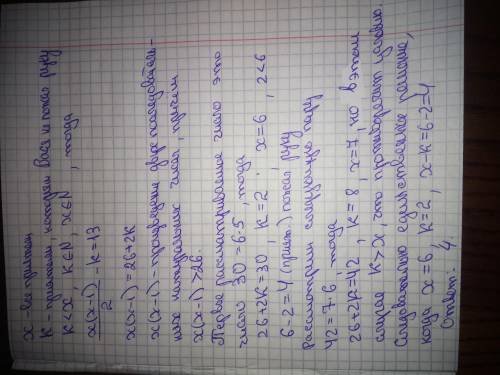 x - все приятели
k - приятели, которым Вася не пожал руку
k<x, k∈N, x∈N, тогда
x(x-1)/2 - k = 13
x(x-1) = 26+2k
x(x-1) - произведение двух последователь-
ных натуральных чисел, причем
x(x-1)>26.
Первое рассматриваемое число это
число 30=6·5, тогда
26+2k=30, k=2, x=6, 2<6
6-2=4 (прият.) пожал руку
Рассмотрим следующую пару
42=7·6, тогда
26+2k=42, k=8 x=7, но в этом
случае k>x, что противоречит условию.
Следовательно единственное решение,
когда x=6, k=2, x-k=6-2=4
Ответ: 4.